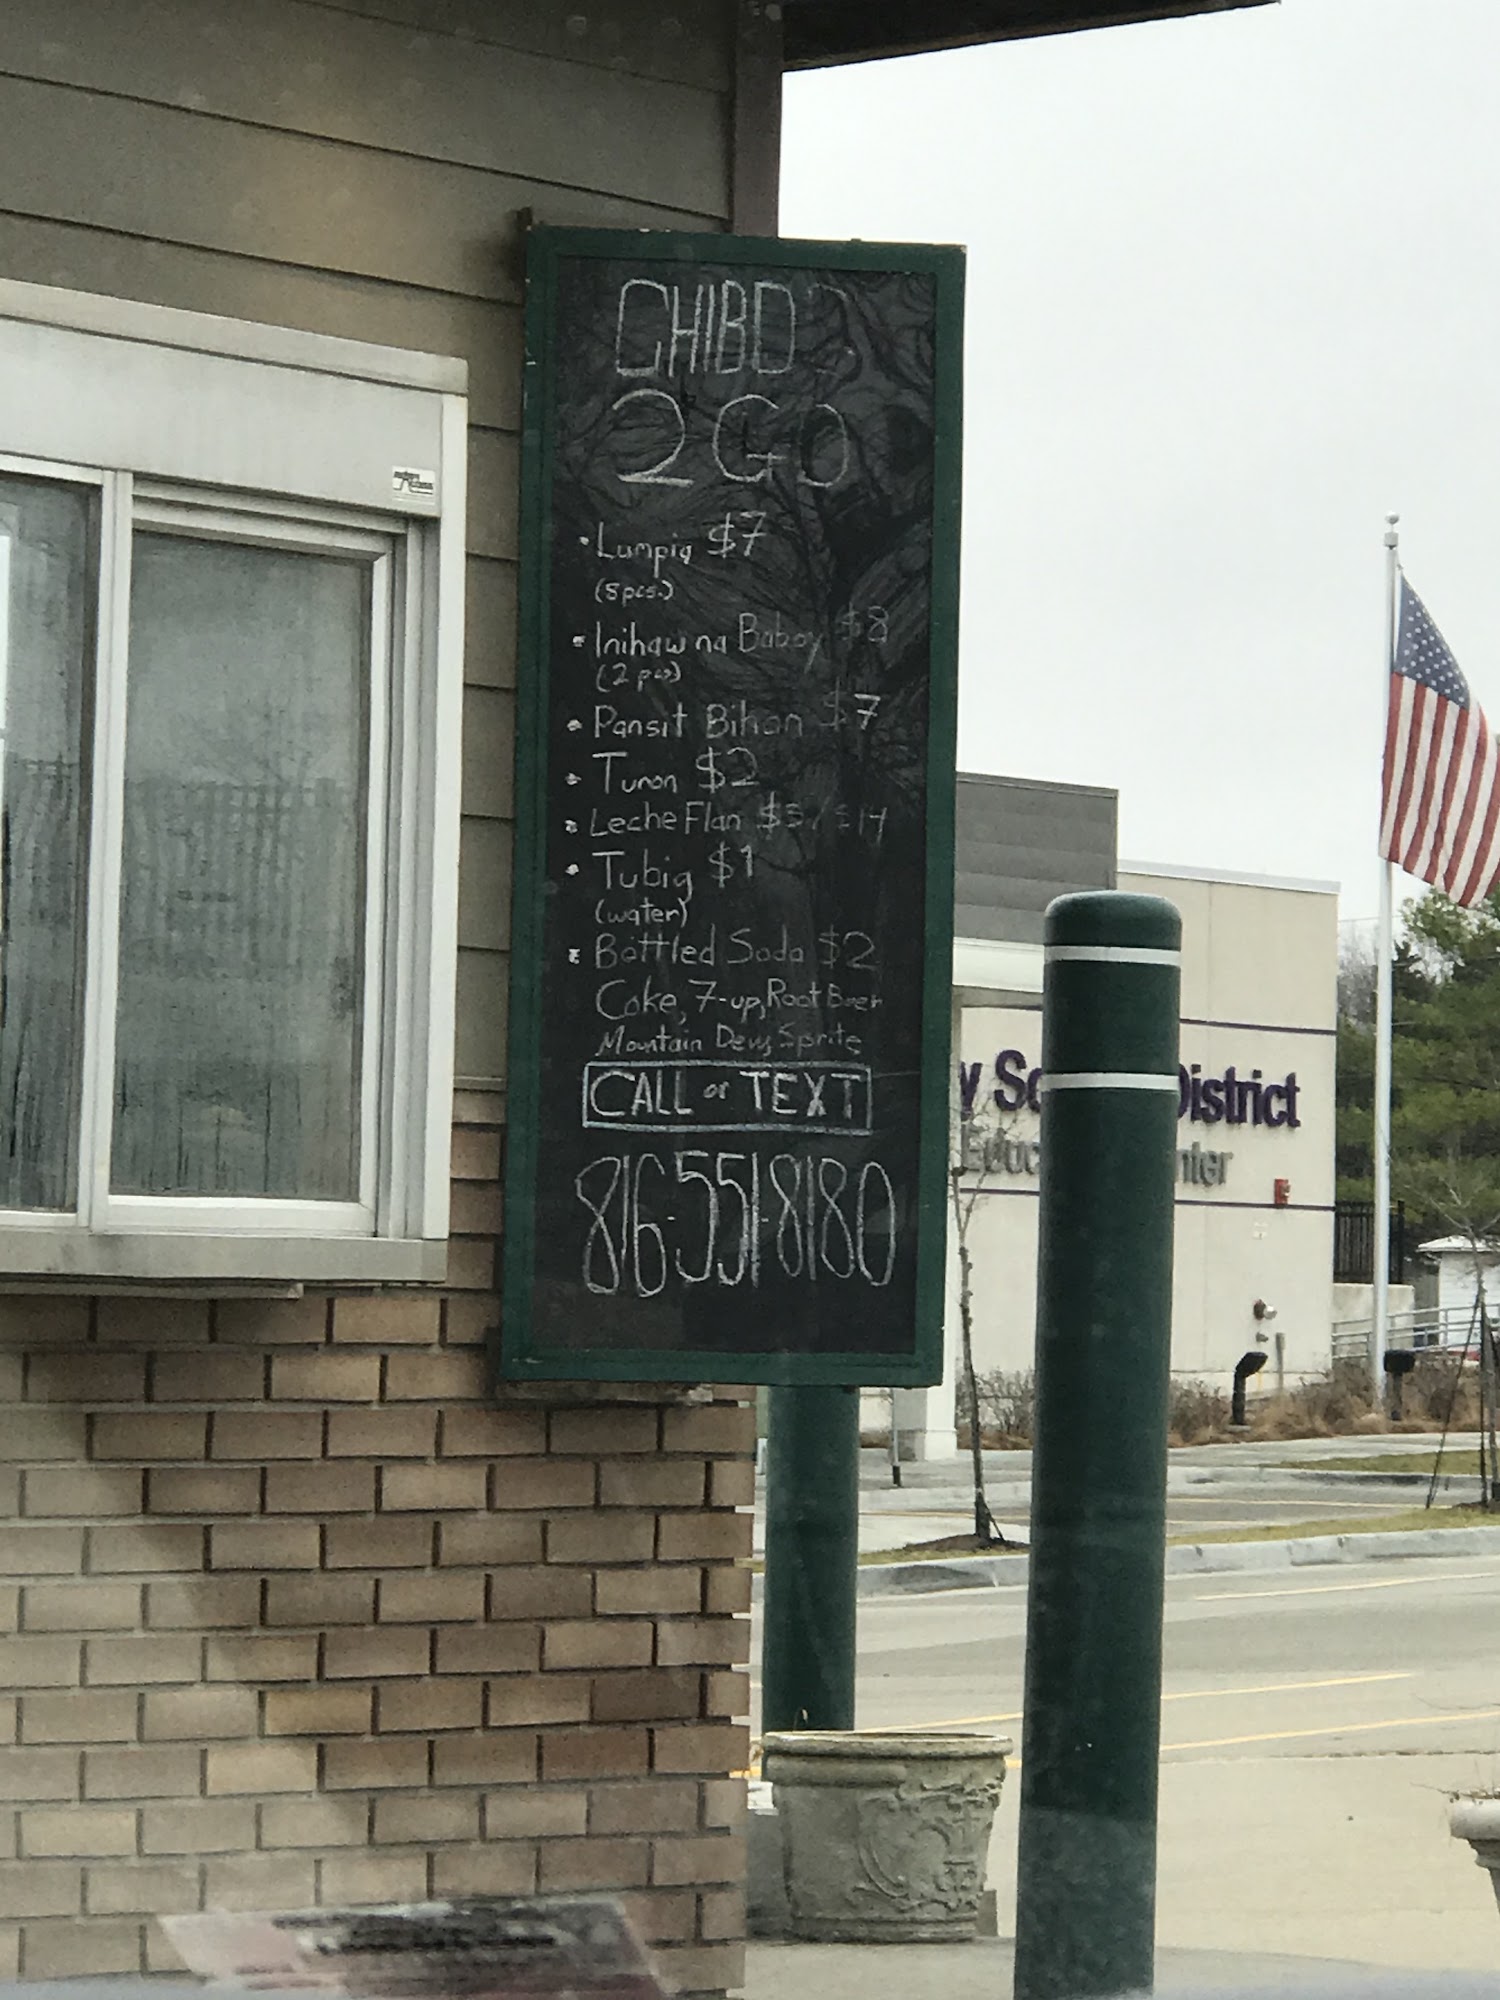 CHIBO
2 GO
• Lumpia $7
(8pcs.)
• Inihaw na Baboy $8
(2 pcs)
• Pansit Bihon $7
• Turon $2
• Leche Flan $5/$14
• Tubig $1
(water)
• Bottled Soda $2
Coke, 7-up, Root Beer
Mountain Dew, Sprite
CALL or TEXT
816-551-8180
District